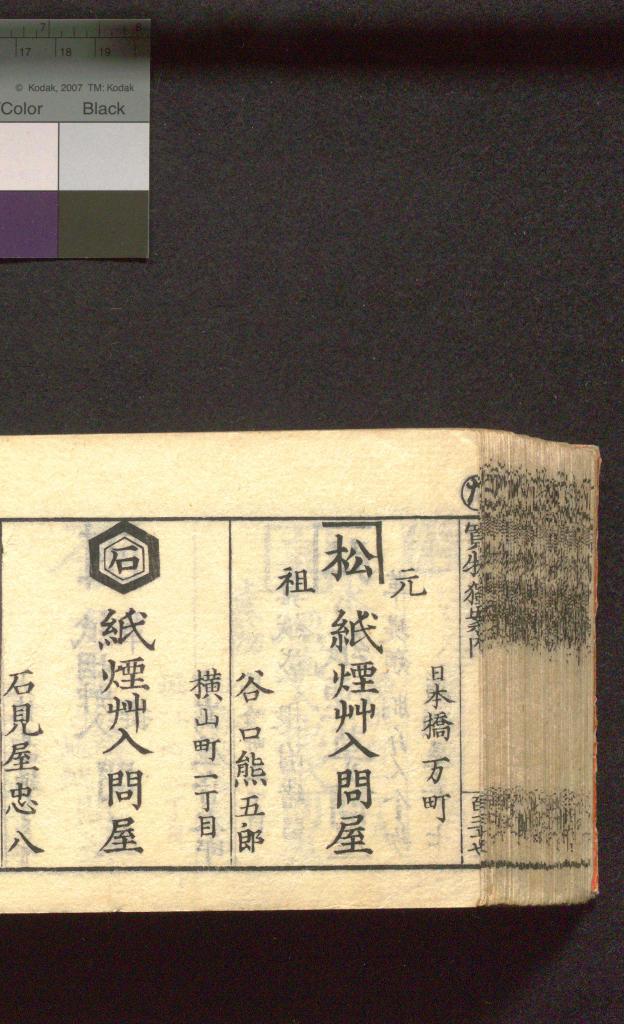 7 8
17 18 19
© Kodak, 2007 TM: Kodak
Color Black
買物獨案内
日本橋万町
元祖
松
紙煙艸入問屋
谷口熊五郎
横山町一丁目
石
紙煙艸入問屋
石見屋忠八